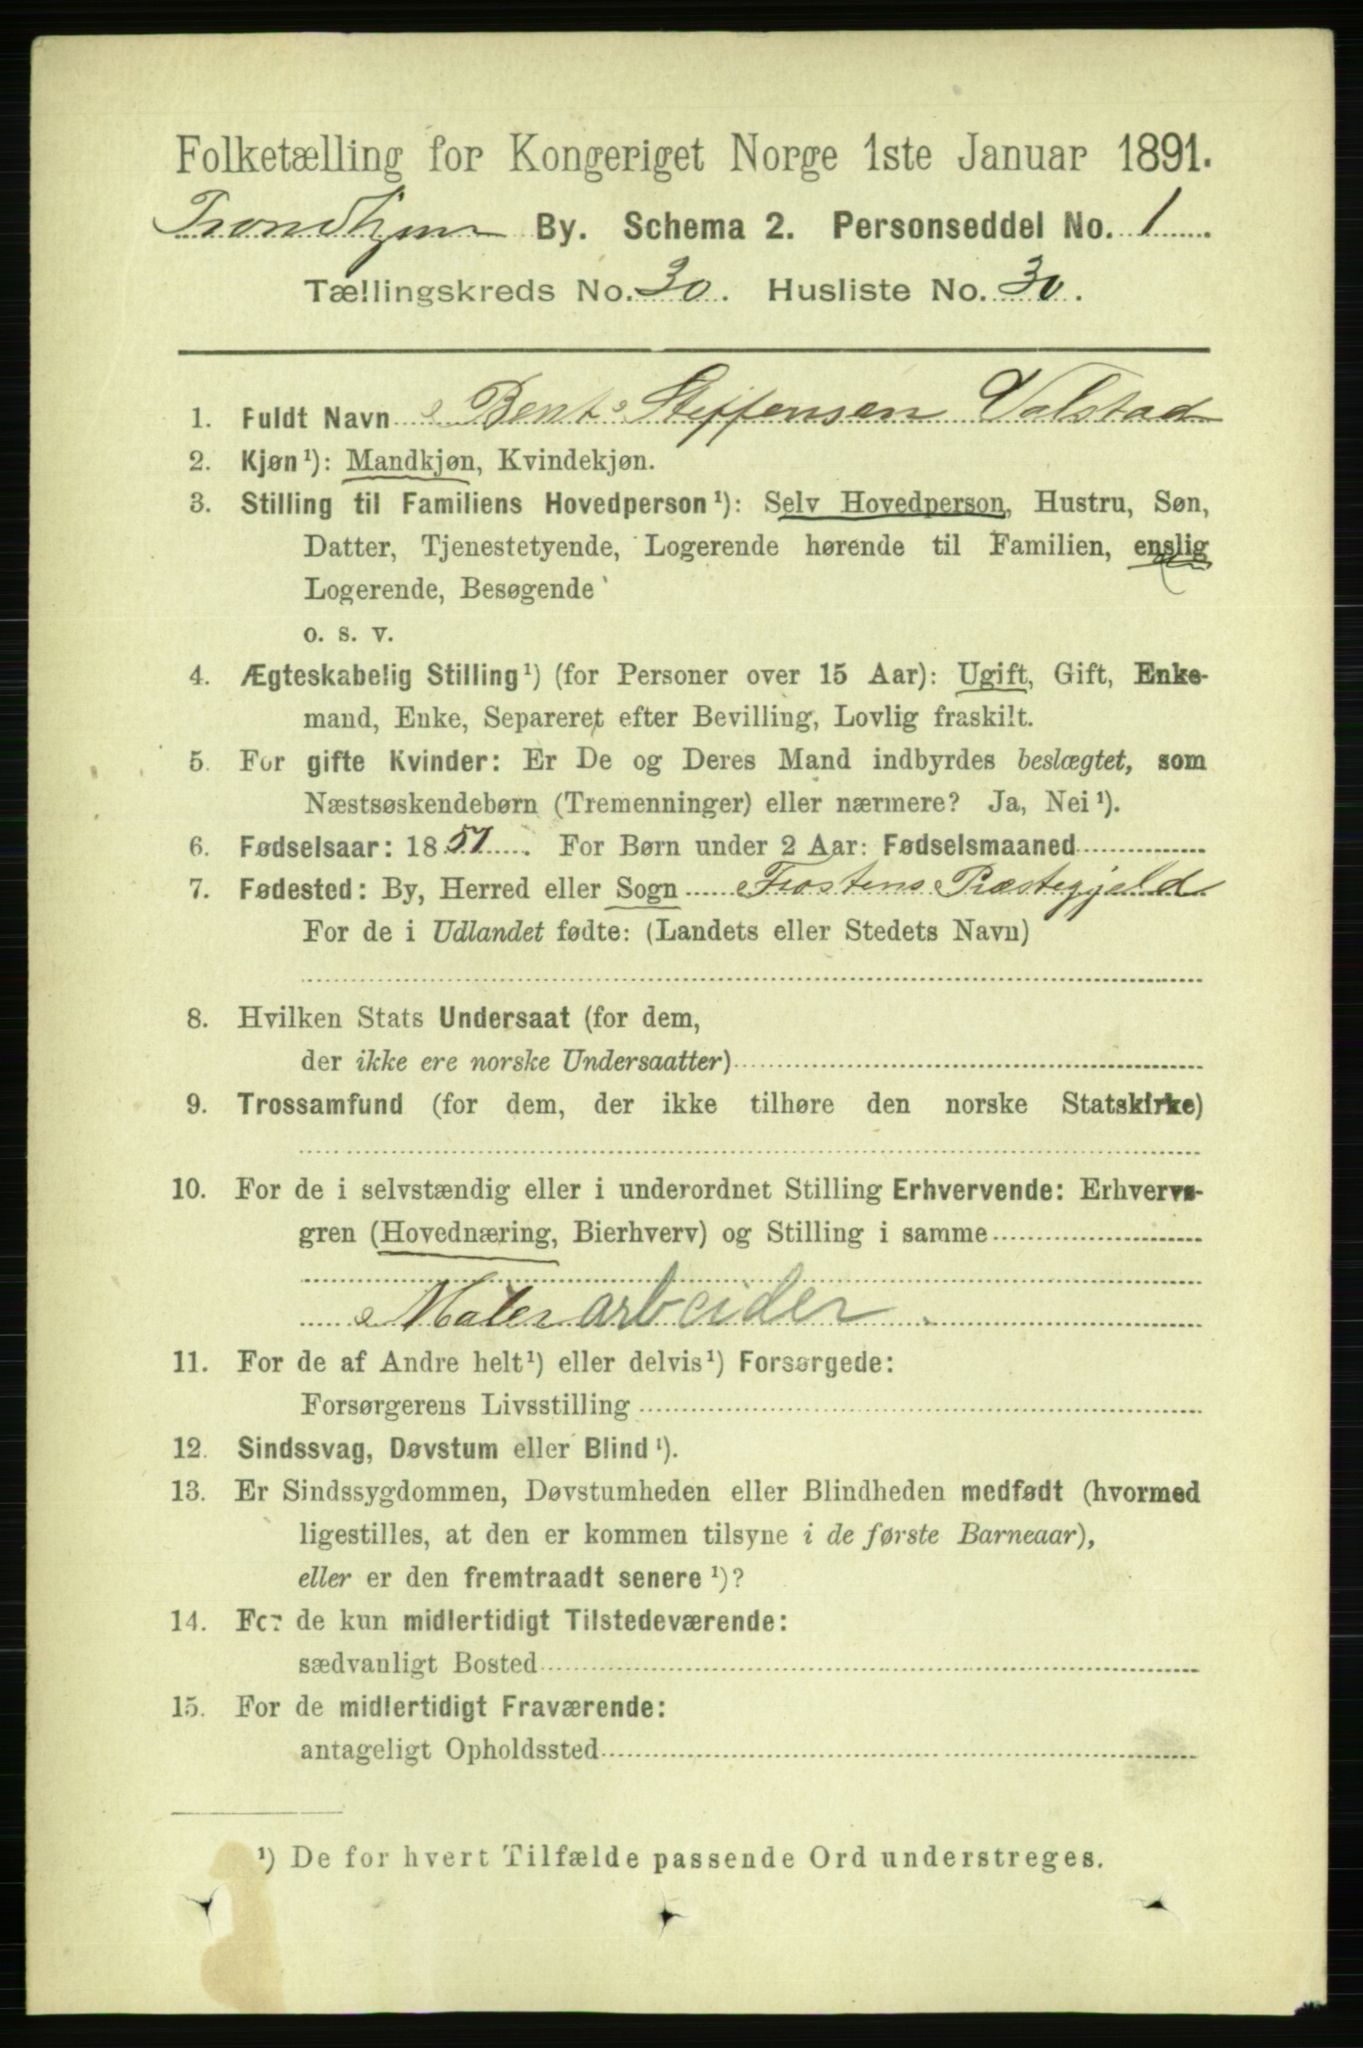 Folketælling for Kongeriget Norge 1ste Januar 1891.
Trondhjem By. Schema 2. Personseddel No. 1
Tællingskreds No. 30. Husliste No. 30.
1. Fuldt Navn Bent Steffensen Valstad
2. Kjøn¹): Mandkjøn, Kvindekjøn.
3. Stilling til Familiens Hovedperson¹): Selv Hovedperson, Hustru, Søn,
Datter, Tjenestetyende, Logerende hørende til Familien, enslig
Logerende, Besøgende
o. s. v.
4. Ægteskabelig Stilling¹) (for Personer over 15 Aar): Ugift, Gift, Enke-
mand, Enke, Separeret efter Bevilling, Lovlig fraskilt.
5. For gifte Kvinder: Er De og Deres Mand indbyrdes beslægtet, som
Næstsøskendebørn (Tremenninger) eller nærmere? Ja, Nei¹).
6. Fødselsaar: 1857. For Børn under 2 Aar: Fødselsmaaned
7. Fødested: By, Herred eller Sogn Frostens Præstegjeld
For de i Udlandet fødte: (Landets eller Stedets Navn)
8. Hvilken Stats Undersaat (for dem,
der ikke ere norske Undersaatter)
9. Trossamfund (for dem, der ikke tilhøre den norske Statskirke)
10. For de i selvstændig eller i underordnet Stilling Erhvervende: Erhvervs-
gren (Hovednæring, Bierhverv) og Stilling i samme
Malerarbeider.
11. For de af Andre helt¹) eller delvis¹) Forsørgede:
Forsørgerens Livsstilling
12. Sindssvag, Døvstum eller Blind¹).
13. Er Sindssygdommen, Døvstumheden eller Blindheden medfødt (hvormed
ligestilles, at den er kommen tilsyne i de første Barneaar),
eller er den fremtraadt senere¹)?
14. For de kun midlertidigt Tilstedeværende:
sædvanligt Bosted
15. For de midlertidigt Fraværende:
antageligt Opholdssted
¹) De for hvert Tilfælde passende Ord understreges.